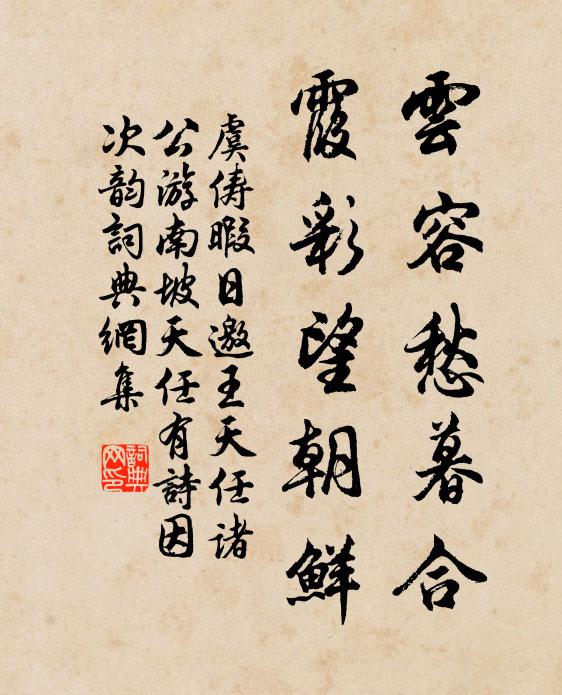 雲容愁暮合
霞彩望朝鮮
虞俦暇日邀王天任诸
公游南坡天任有詩因
次韵詞典網集
詞典
网印